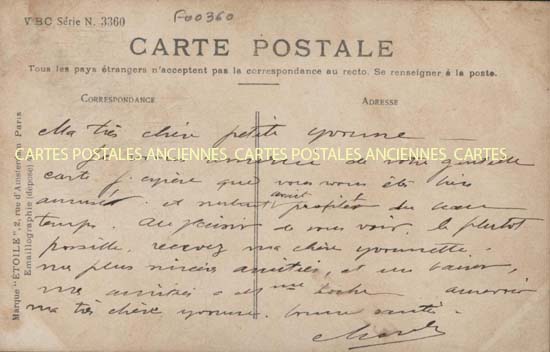 VBC Série N. 3360
F00360
CARTE POSTALE
Tous les pays étrangers n'acceptent pas la correspondance au recto. Se renseigner à la poste.
CORRESPONDANCE
ADRESSE
Marque "ÉTOILE", 2, rue d'Amsterdam Paris
Emaillographie (déposé)
Ma très chère petite Yvonne
CARTES POSTALES ANCIENNES. CARTES POSTALES ANCIENNES. CARTES POSTALES ANCIENNES
de votre gentille
carte j'espère que vous vous êtes bien
amusée et surtout profitée du beau
temps. Au plaisir de vous voir le plutot
possible, recevez ma chère Yvonnette
mes plus sincères amitiés, et un baiser,
mes amitiés a
ma très chère Yvonne. bonne santé.